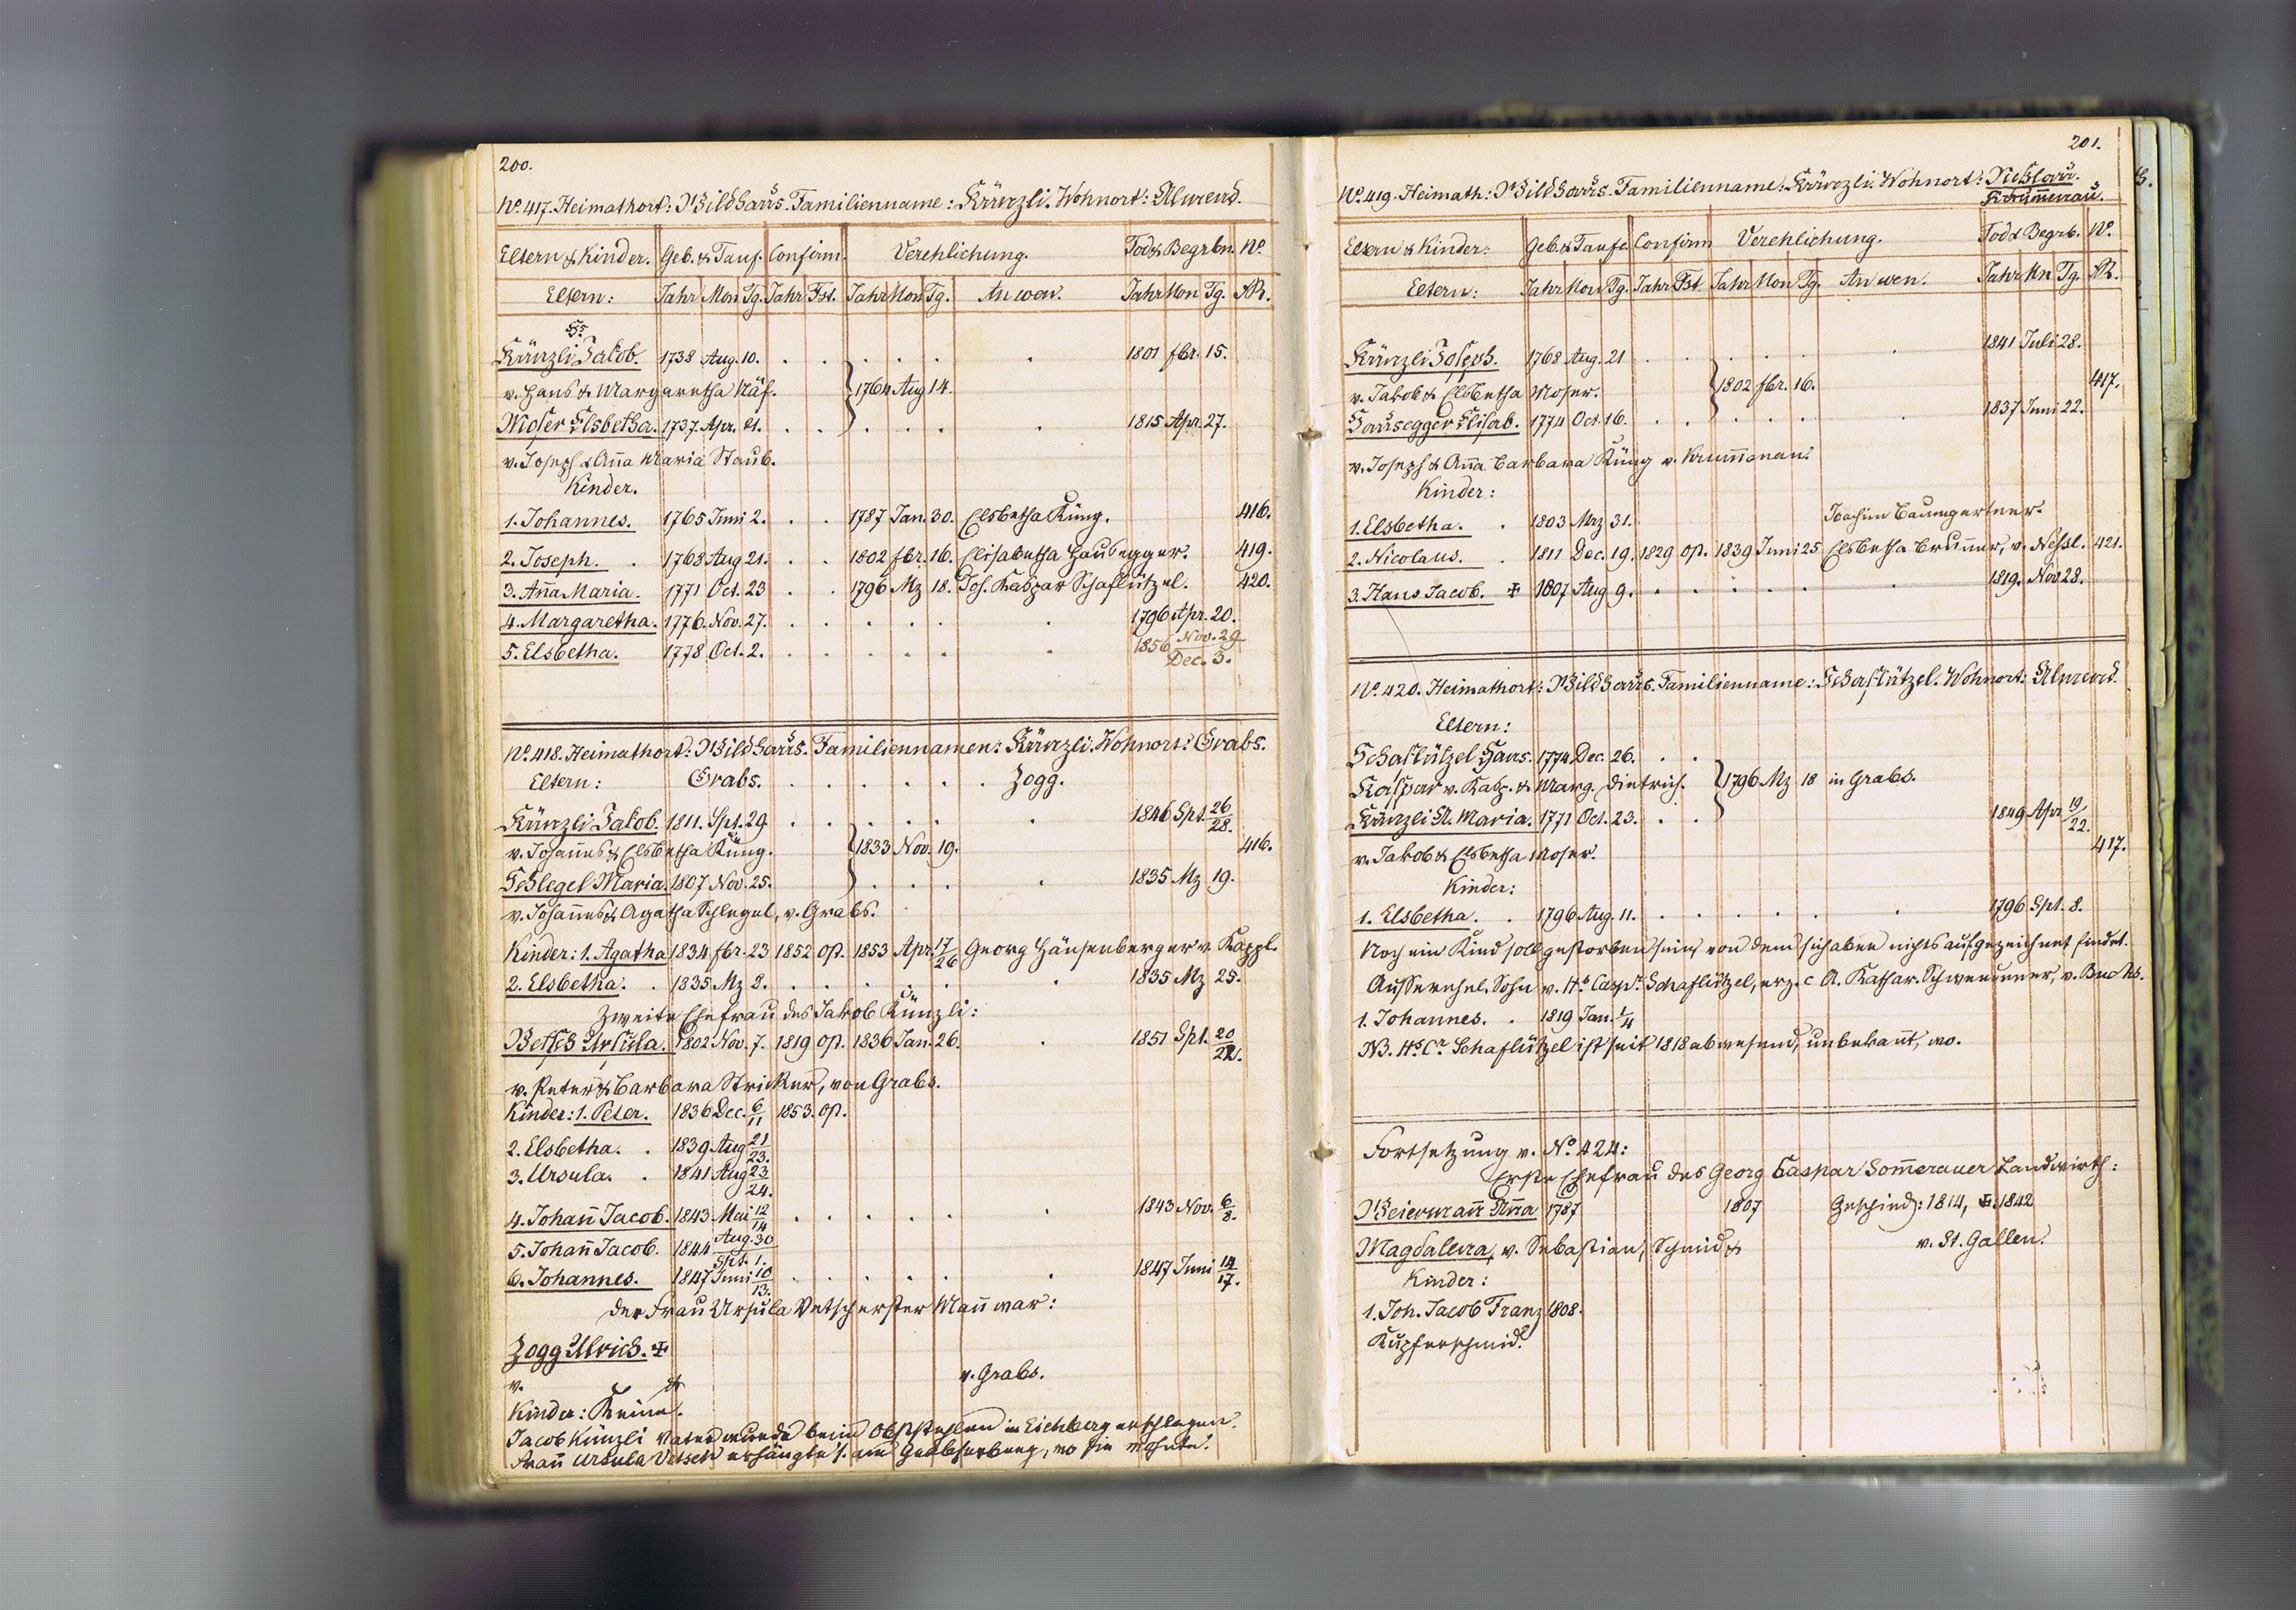 200.
No. 417. Heimathort: Wildhaus. Familienname: Künzli. Wohnort:
Eltern & Kinder. Geb. & Tauf. Confirm. Verehlichung. Tod & Begrbn. No.
Eltern: Jahr Mon Tg. Jahr Fst. Jahr Mon Tg. An wen. Jahr Mon Tg. AR.
Hs.
Künzli Jakob. 1738 Aug. 10. . . . . . . 1801 fbr. 15.
v. Hans & Margaretha Näf. } 1764 Aug 14.
Moser Elsbetha. 1737. Apr. 21. . . . . . . 1815 Apr. 27.
v. Joseph & Ana Maria Staub.
Kinder.
1. Johannes. 1765 Juni 2. . . 1787 Jan. 30. Elsbetha Küng. 416.
2. Joseph. . 1768 Aug 21. . . 1802 fbr. 16. Elisabetha Hausegger. 419.
3. Aña Maria. 1771 Oct. 23 . . 1796 Mz 18. Joh. Kaspar Schaflützel. 420.
4. Margaretha. 1776. Nov. 27. . . . . . . 1796 Apr. 20.
5. Elsbetha. 1778 Oct. 2. . . . . . . 1856 Nov. 29 / Dec. 3.
No. 418. Heimathort: Wildhaus. Familiennamen: Künzli. Wohnort: Grabs.
Eltern: Grabs. . . . . . . Zogg.
Künzli Jakob. 1811. Spt. 29 . . . . . . 1846 Spt. 26/28.
v. Johañes & Elsbetha Küng. } 1833 Nov. 19. 416.
Schlegel Maria. 1807 Nov. 25. . . . . 1835 Mz 19.
v. Johañes & Agatha Schlegel, v. Grabs.
Kinder: 1. Agatha 1834 fbr. 23 1852 op. 1853 Apr. 17/26 Georg Hänsenberger v. Kappl.
2. Elsbetha. . 1835 Mz 8. . . . . . . 1835 Mz 25.
Zweite Ehefrau des Jakob Künzli:
Vetsch Ursula. 1802 Nov. 7. 1819 op. 1836 Jan. 26. . 1851 Spt. 20/22.
v. Peter & Barbara Stricker, von Grabs.
Kinder: 1. Peter. 1836 Dec. 6/11 1853. op.
2. Elsbetha. . 1839 Aug 21/23.
3. Ursula. . 1841 Aug 23/24.
4. Johañ Jacob. 1843 Mai 12/14 . . . . . . 1843 Nov. 6/8.
5. Johañ Jacob. 1844 Aug. 30 / Spt. 1.
6. Johannes. 1847 Juni 10/13. . . . . . . 1847 Juni 14/17.
der Frau Ursula Vetsch erster Mañ war:
Zogg Ulrich. ✠
v. & v. Grabs.
Kinder: Keine.
Jacob Künzli Vater wurde beim Obststehlen in Eichberg erschlagen.
Frau Ursula Vetsch erhängte s. am Grabserberg, wo sie wohnte.
201.
No. 419. Heimath: Wildhaus. Familienname: Künzli. Wohnort: Neßlau.
Krumenau.
Eltern & Kinder: Geb. & Taufe Confirm Verehlichung. Tod & Begrb. No.
Eltern: Jahr Mon Tg. Jahr Fst. Jahr Mon Tg. An wen. Jahr Mn Tg. AR.
Künzli Joseph. 1768 Aug. 21 . . . . . . 1841 Juli 28.
v. Jakob & Elsbetha Moser. } 1802 fbr. 16. 417.
Hausegger Elisab. 1774 Oct. 16. . . . . . . 1837 Juni 22.
v. Joseph & Aña Barbara Küng v. Krumenau.
Kinder:
1. Elsbetha. . 1803 Mrz 31. Joachim Baumgartner.
2. Nicolaus. . 1811 Dec. 19. 1829 op. 1839 Juni 25 Elsbetha Bruner, v. Neßl. 421.
3. Hans Jacob. ✠ 1807 Aug 9. . . . . . . 1819. Nov 28.
No. 420. Heimathort: Wildhaus. Familienname: Schaflützel. Wohnort:
Eltern:
Schaflützel Hans. 1774 Dec. 26. . .
Kaspar v. Kasp. & Marg. Dietrich. } 1796 Mz 18 in Grabs.
Künzli A. Maria. 1771 Oct. 23. . . 1849 Apr 19/22.
v. Jakob & Elsbetha Moser. 417.
Kinder:
1. Elsbetha. . 1796 Aug. 11. . . . . . . 1796 Spt. 8.
Noch ein Kind soll gestorben sein, von dem sich aber nichts aufgezeichnet findet.
Ausserehel. Sohn v. Hs. Casp. Schaflützel, erz. c A. Kathar. Schwendener, v. Buchs.
1. Johannes. . 1819 Jan. 1/4
NB. Hs. Cr. Schaflützel ist seit 1818 abwesend, unbekañt, wo.
Fortsetzung v. No. 424:
Erste Ehefrau des Georg Caspar Somerauer Landwirth:
Weiermañ Aña 1787 1807 Geschied: 1814, ✠. 1842
Magdalena, v. Sebastian, Schmid & v. St. Gallen.
Kinder:
1. Joh. Jacob Franz 1808.
Kupferschmid.